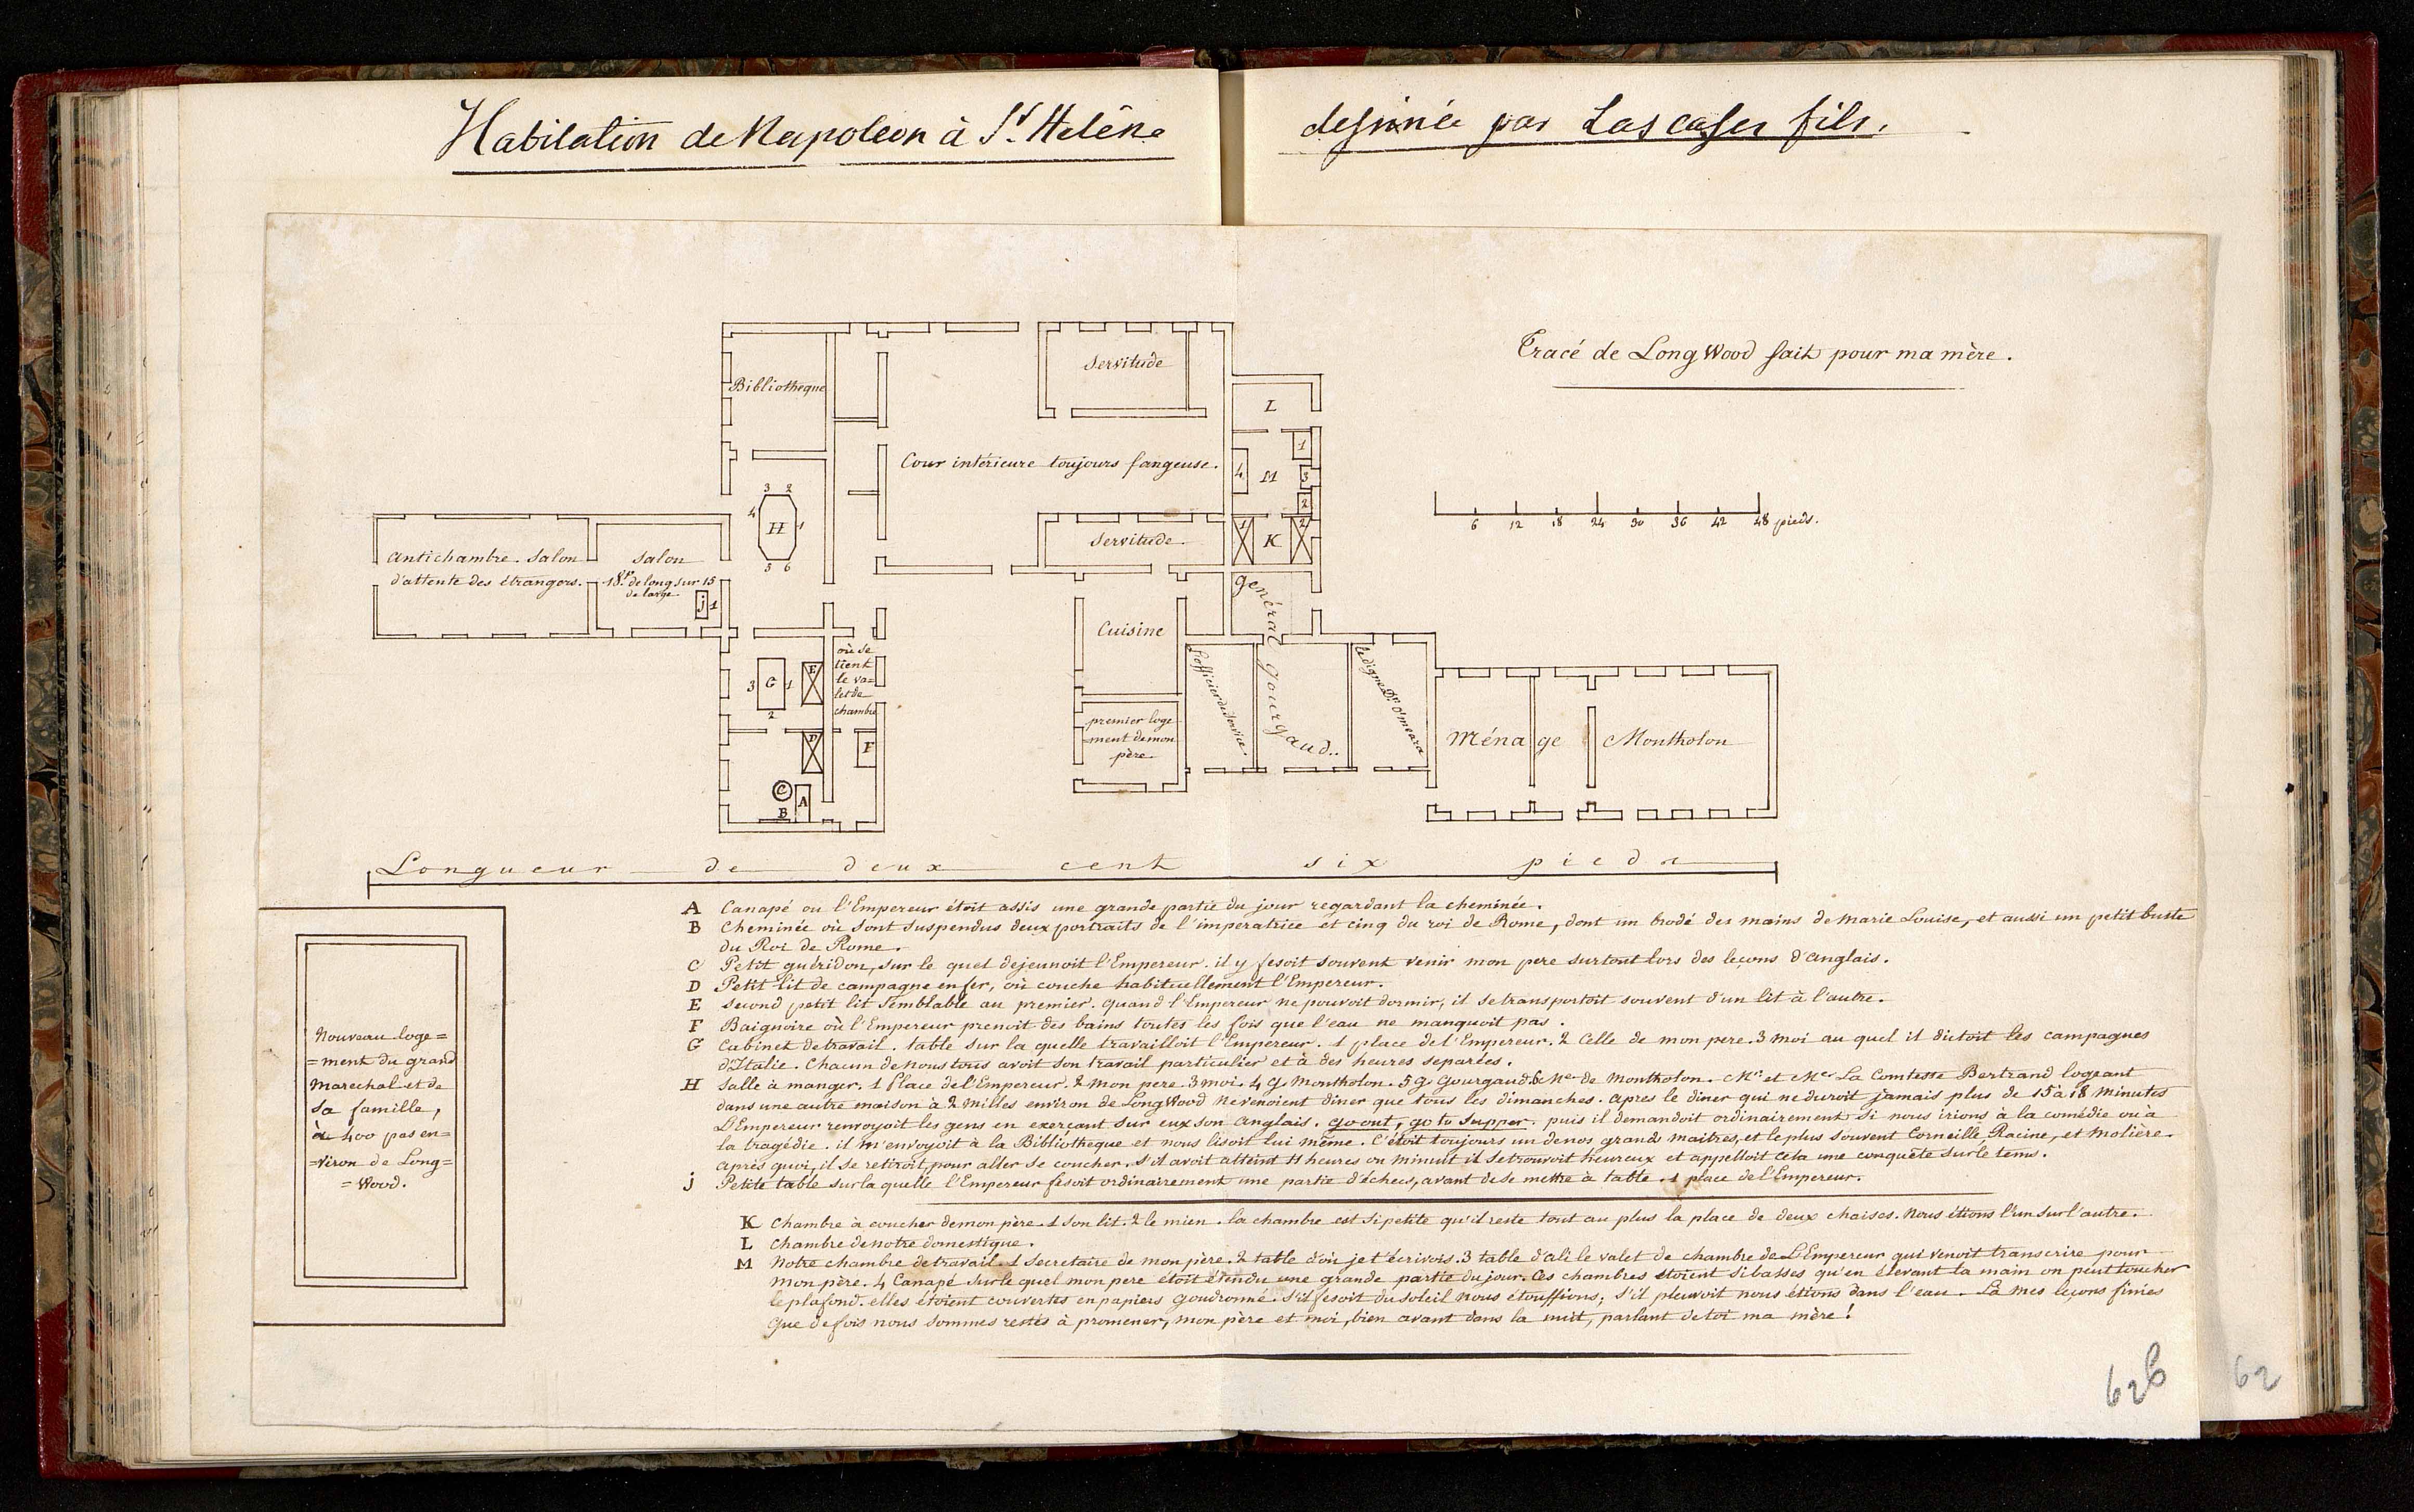 Habitation de Napoleon à St. Helêne dessinée par Las cases fils.
Tracé de Long Wood fait pour ma mère.
Bibliotheque
Servitude
L
Cour intérieure toujours fangeuse.
1
4 M 3
2
3 2
4 H 1
5 6
6 12 18 24 30 36 42 48 pieds.
Servitude
1 K 2
Antichambre. Salon
d'attente des étrangers.
Salon
18 ps. de long sur 15
de large
j 1
général gourgaud.
Cuisine
où se
tient
le va=
let de
chambre
E
3 G 1
2
l'officier de service.
le digne Dr. O'meara
premier loge
=ment de mon
père.
Ménage Montholon
D
F
C
A
B
Longueur de deux cent six pieds
A Canapé ou l'Empereur étoit assis une grande partie du jour regardant la cheminée.
B Cheminée où sont suspendus deux portraits de l'imperatrice et cinq du roi de Rome, dont un brodé des mains de Marie Louise, et aussi un petit buste
du Roi de Rome.
C Petit guéridon, sur le quel dejeunoit l'Empereur. il y fesoit souvent venir mon pere surtout lors des leçons d'anglais.
D Petit lit de campagne en fer, où couche habituellement l'Empereur.
E Second petit lit semblable au premier. quand l'Empereur ne pouvoit dormir, il se transportoit souvent d'un lit à l'autre.
F Baignoire où l'Empereur prenoit des bains toutes les fois que l'eau ne manquoit pas.
G Cabinet de travail. table sur la quelle travailloit l'Empereur. 1 place de l'Empereur. 2 Celle de mon pere. 3 moi au quel il dictoit les campagnes
d'Italie. Chacun de nous tous avoit son travail particulier et à des heures separées.
H Salle à manger. 1 Place de l'Empereur. 2 mon pere. 3 moi. 4 g. Montholon. 5 g. Gourgaud. 6 Me. de Montholon. Mr. et Me. La Comtesse Bertrand logeant
dans une autre maison à 2 milles environ de Long Wood ne venoient diner que tous les dimanches. après le diner qui ne duroit jamais plus de 15 à 18 minutes
L'Empereur renvoyoit les gens en exerçant sur eux son anglais. go out, go to supper. puis il demandoit ordinairement si nous irions à la comédie ou à
la tragédie. il m'envoyoit à la Bibliotheque et nous lisoit lui même. C'étoit toujours un de nos grands maitres, et le plus souvent Corneille, Racine, et Molière.
après quoi, il se retiroit, pour aller se coucher. s'il avoit atteint 11 heures ou minuit il se trouvoit heureux et appelloit cela une conquête sur le tems.
j Petite table sur la quelle l'Empereur fesoit ordinairement une partie d'échecs, avant de se mettre à table. 1 place de l'Empereur.
K Chambre à coucher de mon père. 1 son lit. 2 le mien. la chambre est si petite qu'il reste tout au plus la place de deux chaises. Nous étions l'un sur l'autre.
L Chambre de notre domestique.
M Notre chambre de travail. 1 Secretaire de mon père. 2 table d'où je t'écrivois. 3 table d'ali le valet de chambre de L'Empereur qui venoit transcrire pour
mon père. 4 Canapé sur le quel mon pere étoit étendu une grande partie du jour. Ces chambres étoient si basses qu'en élevant la main on peut toucher
le plafond. elles étoient couvertes en papiers goudronné. s'il fesoit du soleil nous étouffions; s'il pleuvoit nous étions dans l'eau. Là mes leçons finies
que de fois nous sommes restés à promener, mon père et moi, bien avant dans la nuit, parlant de toi ma mère!
Nouveau loge=
=ment du grand
Marechal et de
sa famille,
à 400 pas en=
=viron de Long=
=Wood.
62b
62